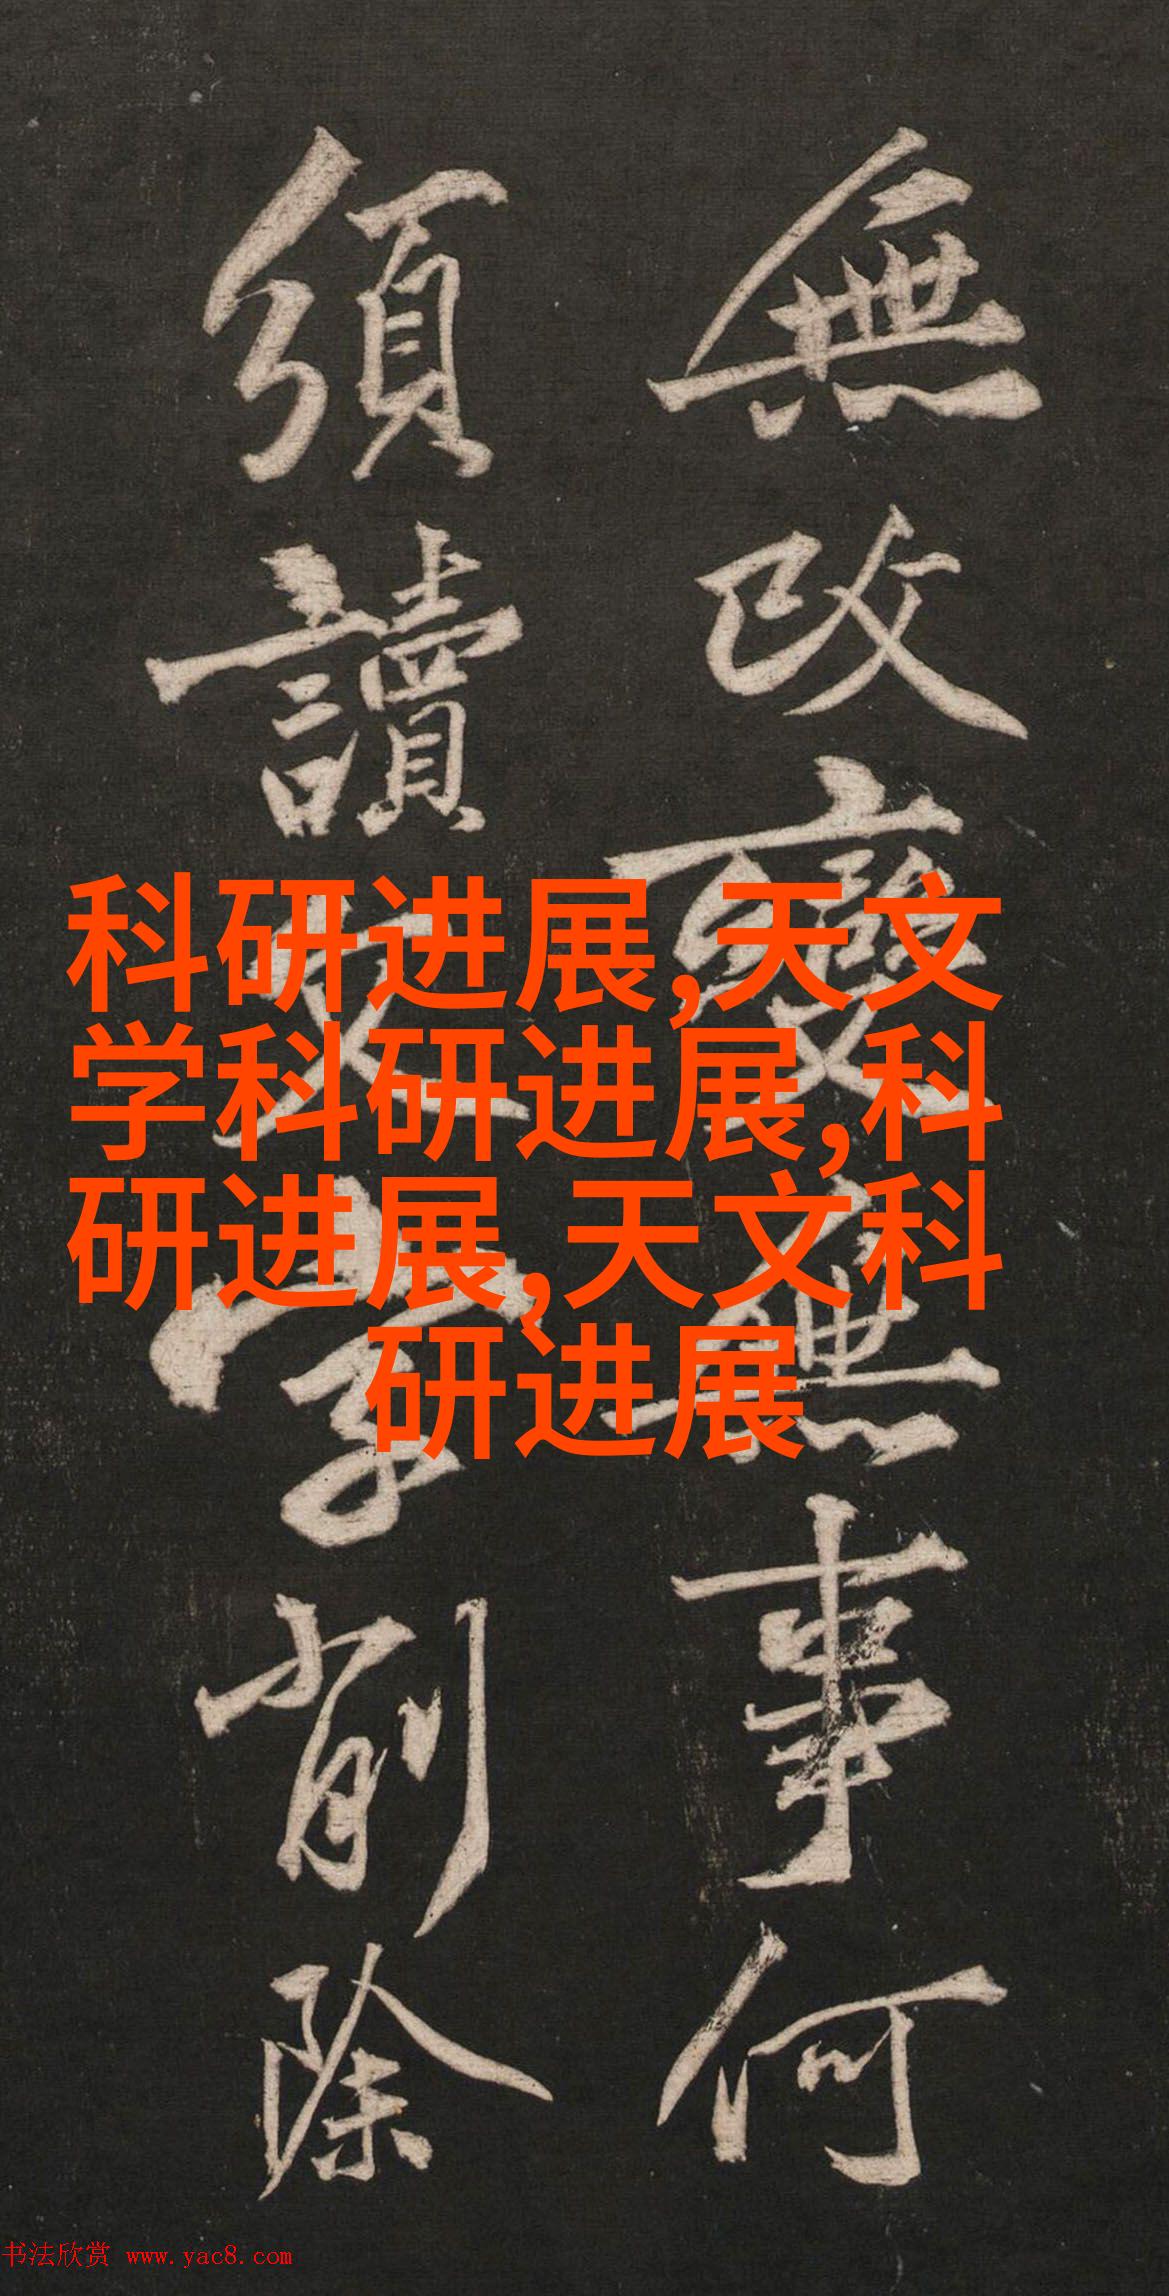 無改變無事何
須讀文字削除
科研进展,天文
学科研进展,科
研进展,天文科
研进展
书法欣赏 www.yac8.com